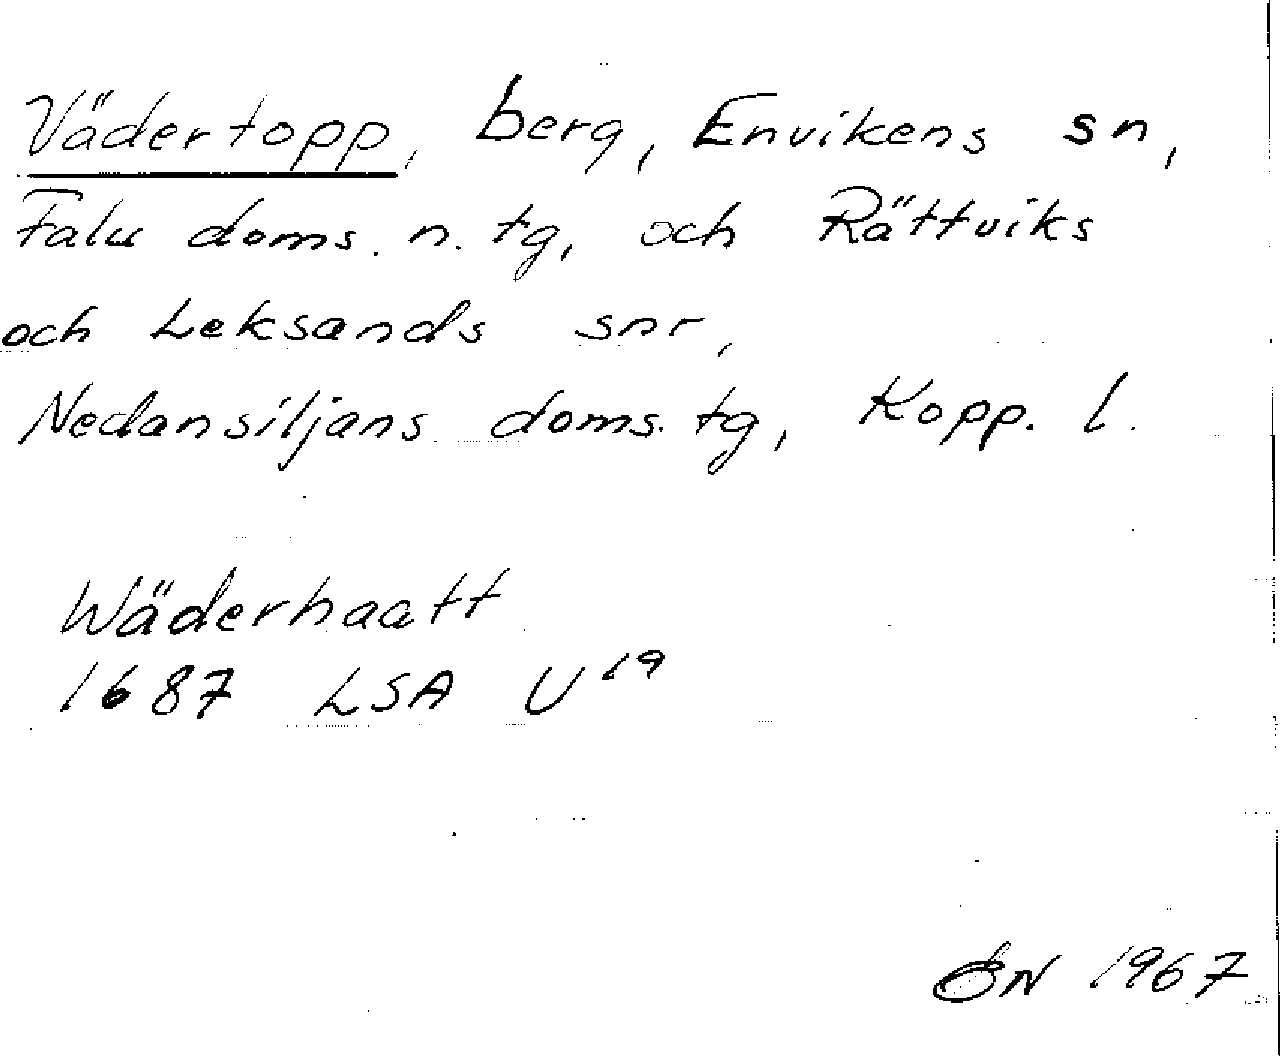 Vädertopp, berg, Envikens sn,
Falu doms. n. tg, och Rättviks
och Leksands snr,
Nedansiljans doms. tg, Kopp. l.
Wäderhaatt
1687 LSA U19
ÖN 1967